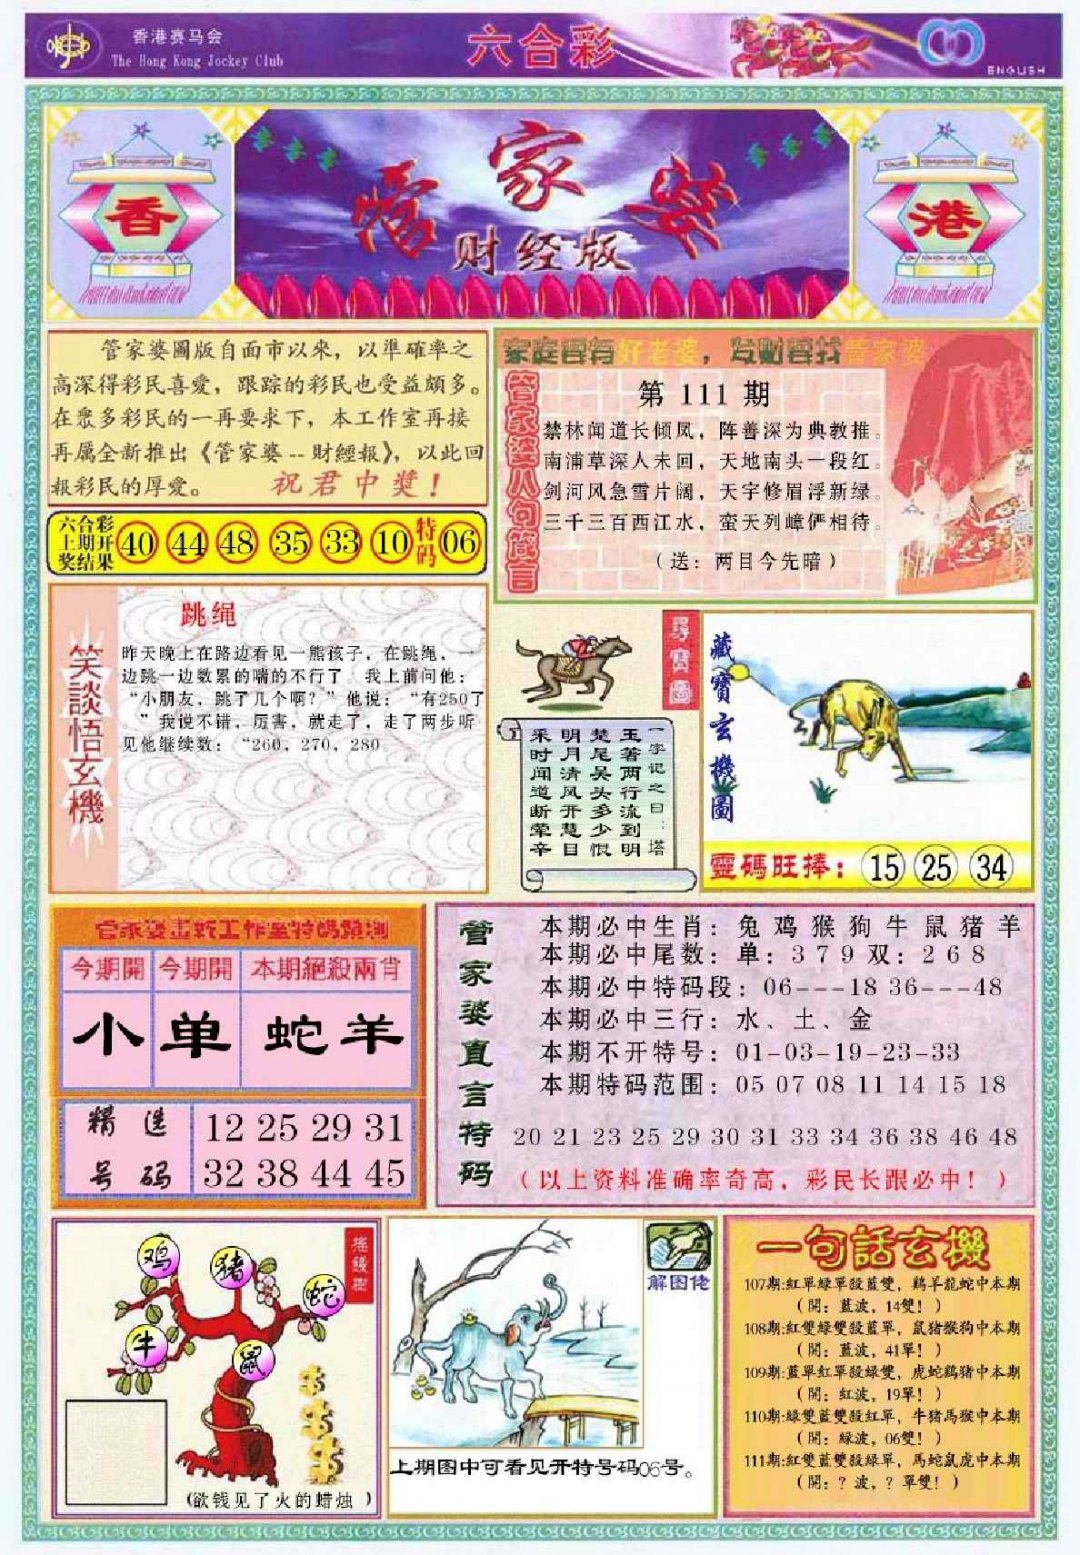 香港赛马会
The Hong Kong Jockey Club
六合彩
ENGLISH
香
管家婆
财经版
港
管家婆圖版自面市以來，以準確率之
高深得彩民喜愛，跟踪的彩民也受益頗多。
在眾多彩民的一再要求下，本工作室再接
再属全新推出《管家婆--財經報》，以此回
報彩民的厚愛。 祝君中獎！
六合彩
上期开
奖结果
40 44 48 35 33 10 特码 06
家庭要有好老婆，发财要找管家婆
管家婆八句箴言
第 111 期
禁林闻道长倾凤，阵善深为典教推。
南浦草深人未回，天地南头一段红。
剑河风急雪片阔，天宇修眉浮新绿。
三千三百西江水，蛮天列嶂俨相待。
（送：两目今先暗）
笑談悟玄機
跳绳
昨天晚上在路边看见一熊孩子，在跳绳，一
边跳一边数累的喘的不行了，我上前问他：
“小朋友，跳了几个啊？”他说：“有250了
”我说不错，厉害，就走了，走了两步听
见他继续数：“260，270，280
尋寶圖
一字记之曰：塔
玉著两行流到明
楚尾吴头多少恨
明月清风开慧目
采时闻道断荤辛
藏寶玄機圖
靈碼旺捧： 15 25 34
管家婆畫新工作室特碼預測
今期開 今期開 本期絕殺兩肖
小 单 蛇羊
精选
号码
12 25 29 31
32 38 44 45
管家婆直言特码
本期必中生肖：兔鸡猴狗牛鼠猪羊
本期必中尾数：单：379双：268
本期必中特码段：06---18 36---48
本期必中三行：水、土、金
本期不开特号：01-03-19-23-33
本期特码范围：05 07 08 11 14 15 18
20 21 23 25 29 30 31 33 34 36 38 46 48
（以上资料准确率奇高，彩民长跟必中！）
搖錢樹
鸡
猪
蛇
牛
鼠
（欲钱见了火的蜡烛）
解图佬
上期图中可看见开特号码06号。
一句話玄機
107期:紅單綠單殺藍雙，鷄羊龍蛇中本期
（開：藍波，14雙！）
108期:紅雙綠雙殺藍單，鼠猪猴狗中本期
（開：藍波，41單！）
109期:藍單紅單殺綠雙，虎蛇鷄猪中本期
（開：紅波，19單！）
110期:綠雙藍雙殺紅單，牛猪馬猴中本期
（開：綠波，06雙！）
111期:紅雙藍雙殺綠單，馬蛇鼠虎中本期
（開：？波，？單雙！）